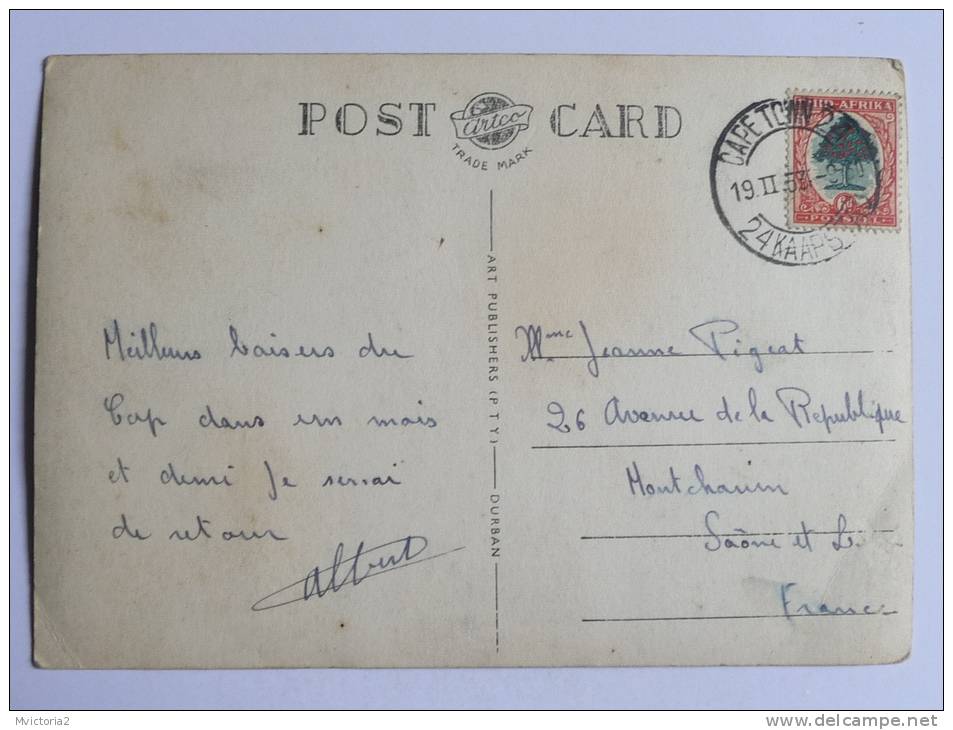 POST CARD
Artco
TRADE MARK
SUID-AFRIKA
6D
POSSEEL
CAPE TOWN 24
19.II.53
24 KAAPS
ART PUBLISHERS (PTY) DURBAN
Meilleurs baisers du
Cap dans un mois
et demi Je serrai
de retour
Albert
Mme Jeanne Pigeat
26 Avenue de la Republique
Montchanin
Saône et L.
France
Mvictoria2
http://www.delcampe.net